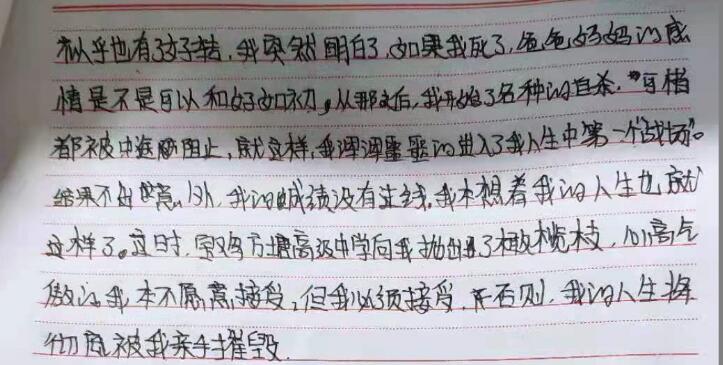 似乎也有了好转，我突然明白了，如果我死了，爸爸妈妈的感
情是不是可以和好如初，从那之后，我开始了各种的自杀，可惜
都被中途阻止，就这样，我浑浑噩噩的进入了我人生中第一个"战场"。
结果不出意外，我的成绩没有过线，我本想着我的人生也就
这样了。这时，高级中学向我抛出了橄榄枝，心高气
傲的我本不愿意接受，但我必须接受，否则，我的人生将
彻底被我亲手摧毁.